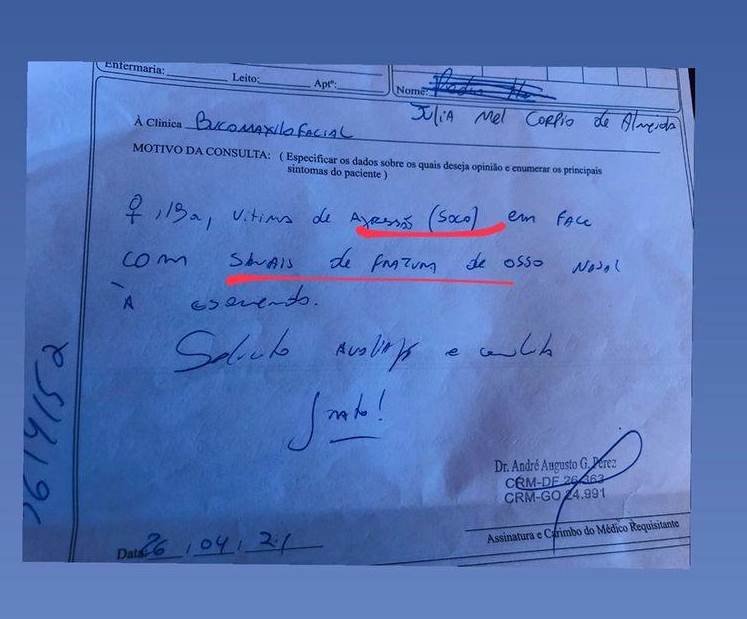 Enfermaria: Leito: Aptº:
Nome:
JÚLIA Mel Corpio de Almeida
À Clínica BUCOMAXILOFACIAL
MOTIVO DA CONSULTA: ( Especificar os dados sobre os quais deseja opinião e enumerar os principais
sintomas do paciente )
♀, vítima de Agressão (SOCO) em FACE
COM SINAIS de FRATURA de OSSO NASAL
À esquerda.
Solicito AVALIAÇÃO e conduta
Grato!
Dr. André Augusto G. Pérez
CRM-DF 26.363
CRM-GO 24.991
Assinatura e Carimbo do Médico Requisitante
Data 26, 04, 21